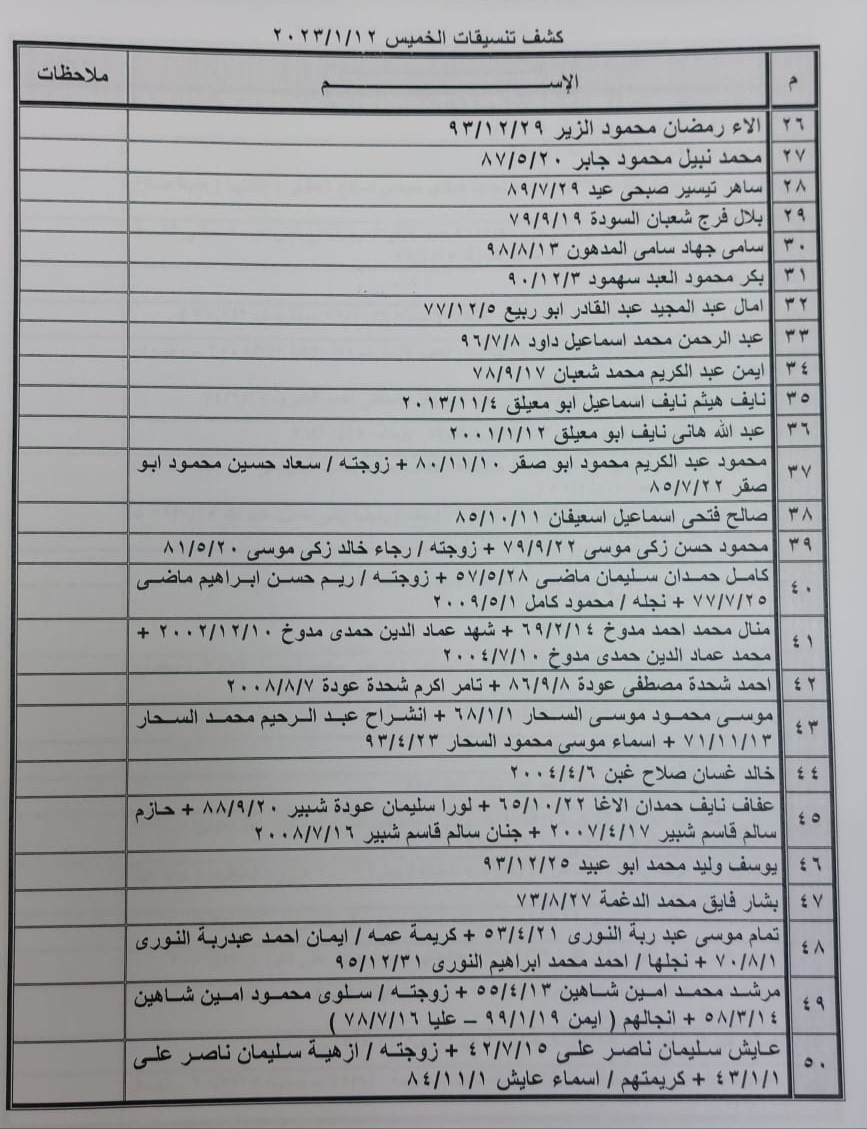 كشف تنسيقات الخميس ٢٠٢٣/١/١٢
م الإســـــــــــــــــم ملاحظات
٢٦ الاء رمضان محمود الزير ٩٣/١٢/٢٩
٢٧ محمد نبيل محمود جابر ٨٧/٥/٢٠
٢٨ ساهر تيسير صبحى عيد ٨٩/٧/٢٩
٢٩ بلال فرج شعبان السودة ٧٩/٩/١٩
٣٠ سامى جهاد سامى المدهون ٩٨/٨/١٣
٣١ بكر محمود العبد سهمود ٩٠/١٢/٣
٣٢ امال عبد المجيد عبد القادر ابو ربيع ٧٧/١٢/٥
٣٣ عبد الرحمن محمد اسماعيل داود ٩٦/٧/٨
٣٤ ايمن عبد الكريم محمد شعبان ٧٨/٩/١٧
٣٥ نايف هيثم نايف اسماعيل ابو معيلق ٢٠١٣/١١/٤
٣٦ عبد الله هانى نايف ابو معيلق ٢٠٠١/١/١٢
٣٧ محمود عبد الكريم محمود ابو صقر ٨٠/١١/١٠ + زوجته / سعاد حسين محمود ابو
صقر ٨٥/٧/٢٢
٣٨ صالح فتحى اسماعيل اسعيفان ٨٥/١٠/١١
٣٩ محمود حسن زكى موسى ٧٩/٩/٢٢ + زوجته / رجاء خالد زكى موسى ٨١/٥/٢٠
٤٠ كامل حمدان سليمان ماضى ٥٧/٥/٢٨ + زوجته / ريم حسن ابراهيم ماضى
٧٧/٧/٢٥ + نجله / محمود كامل ٢٠٠٩/٥/١
٤١ منال محمد احمد مدوخ ٦٩/٢/١٤ + شهد عماد الدين حمدى مدوخ ٢٠٠٢/١٢/١٠ +
محمد عماد الدين حمدى مدوخ ٢٠٠٤/٧/١٠
٤٢ احمد شحدة مصطفى عودة ٨٦/٩/٨ + تامر اكرم شحدة عودة ٢٠٠٨/٨/٧
٤٣ موسى محمود موسى السحار ٦٨/١/١ + انشراح عبد الرحيم محمد السحار
٧١/١١/١٣ + اسماء موسى محمود السحار ٩٣/٤/٢٣
٤٤ خالد غسان صلاح غبن ٢٠٠٤/٤/٦
٤٥ عفاف نايف حمدان الاغا ٦٥/١٠/٢٢ + لورا سليمان عودة شبير ٨٨/٩/٢٠ + حازم
سالم قاسم شبير ٢٠٠٧/٤/١٧ + جنان سالم قاسم شبير ٢٠٠٨/٧/١٦
٤٦ يوسف وليد محمد ابو عبيد ٩٣/١٢/٢٥
٤٧ بشار فايق محمد الدغمة ٧٣/٨/٢٧
٤٨ تمام موسى عبد ربة النورى ٥٣/٤/٢١ + كريمة عمه / ايمان احمد عبدربة النورى
٧٠/٨/١ + نجلها / احمد محمد ابراهيم النورى ٩٥/١٢/٣١
٤٩ مرشد محمد امين شاهين ٥٥/٤/١٣ + زوجته / سلوى محمود امين شاهين
٥٨/٣/١٤ + انجالهم ( ايمن ٩٩/١/١٩ – عليا ٧٨/٧/١٦ )
٥٠ عايش سليمان ناصر على ٤٢/٧/١٥ + زوجته / ازهية سليمان ناصر على
٤٣/١/١ + كريمتهم / اسماء عايش ٨٤/١١/١